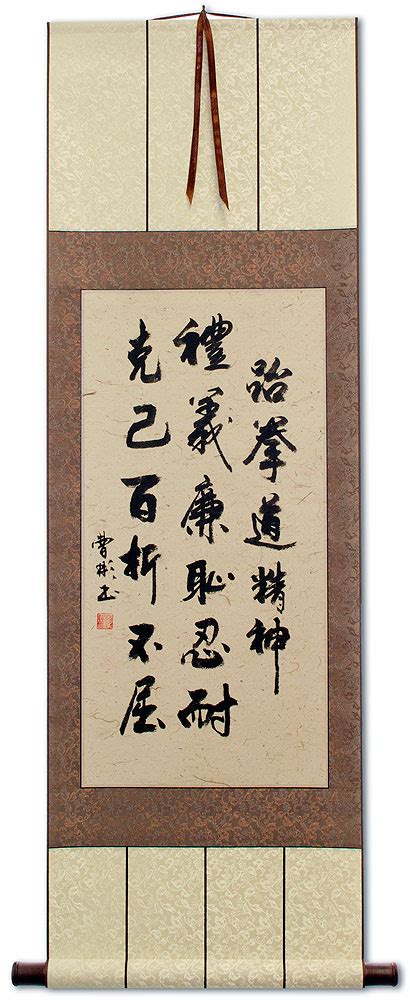 跆拳道精神
禮義廉恥忍耐
克己百折不屈